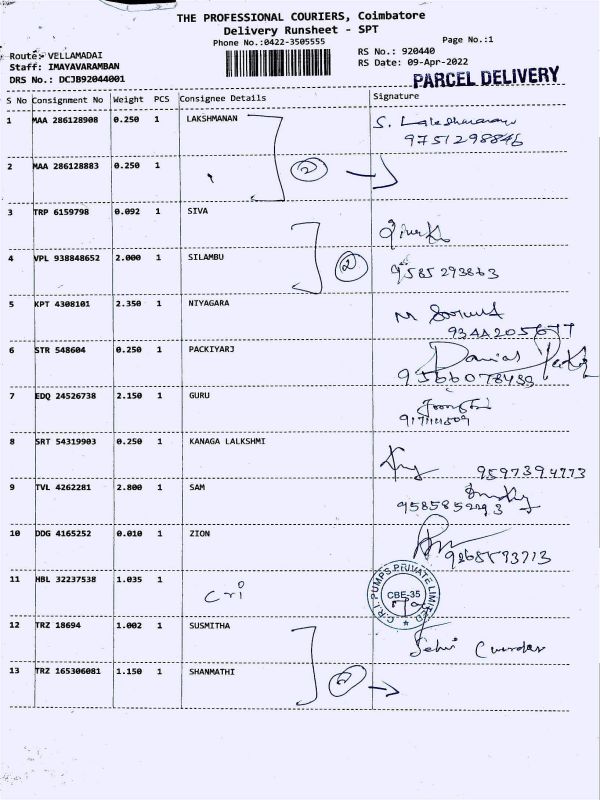 THE PROFESSIONAL COURIERS, Coimbatore
Delivery Runsheet - SPT
Phone No.:0422-3505555
Page No.:1
Route: VELLAMADAI
RS No.: 920440
Staff: IMAYAVARAMBAN
RS Date: 09-Apr-2022
DRS No.: DCJB92044001
PARCEL DELIVERY
S No Consignment No Weight PCS Consignee Details Signature
1 MAA 286128908 0.250 1 LAKSHMANAN
9751298846
2 MAA 286128883 0.250 1
2
3 TRP 6159798 0.092 1 SIVA
4 VPL 938848652 2.000 1 SILAMBU
2
9585293863
5 KPT 4308101 2.350 1 NIYAGARA
9344205677
6 STR 548604 0.250 1 PACKIYARJ
7 EDQ 24526738 2.150 1 GURU
8 SRT 54319903 0.250 1 KANAGA LALKSHMI
9597394773
9 TVL 4262281 2.800 1 SAM
10 DDG 4165252 0.010 1 ZION
11 HBL 32237538 1.035 1
Cri
C.R.I. PUMPS PRIVATE LIMITED
CBE-35
12 TRZ 18694 1.002 1 SUSMITHA
13 TRZ 165306081 1.150 1 SHANMATHI
2